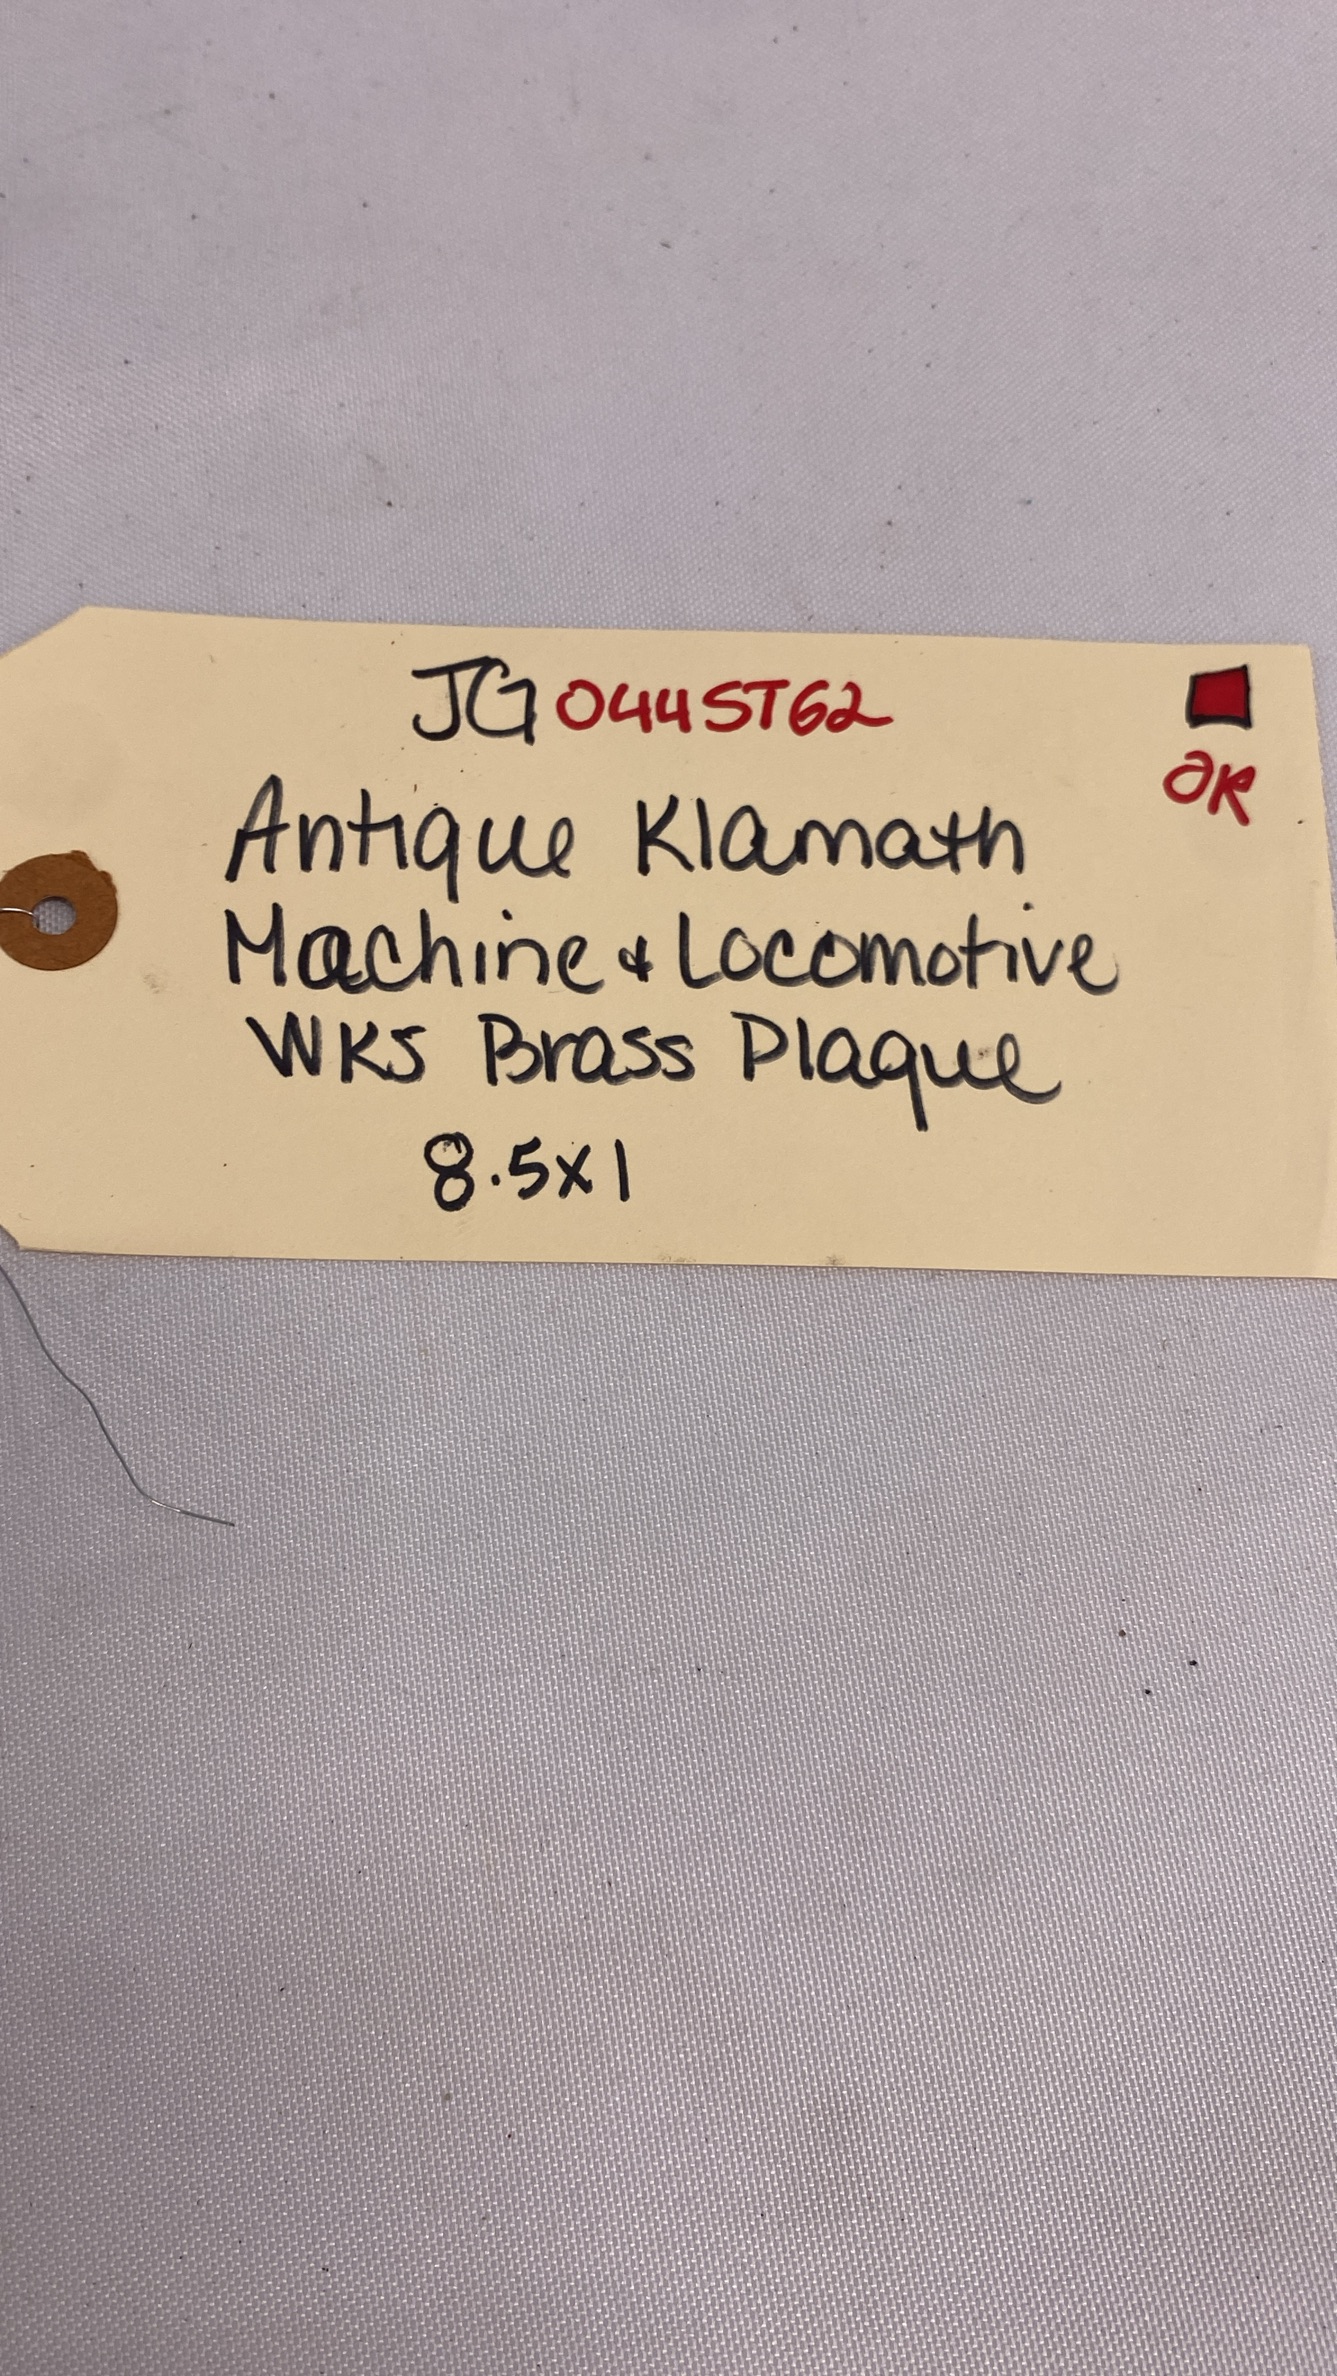 JG 044ST62
JK
Antique Klamath
Machine & Locomotive
WKS Brass Plaque
8.5x1